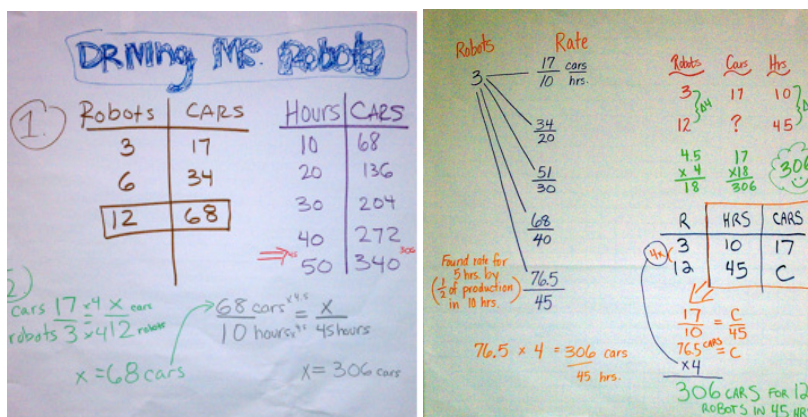 DRIVING MS. Robots
1.
Robots CARS
3 17
6 34
12 68
Hours CARS
10 68
20 136
30 204
40 272
306
50 340
cars 17 x4 x cars
robots 3 x4 12 robots
x = 68 cars
68 cars x4.5 = x
10 hours 45 hours
x = 306 cars
Robots Rate
3 17 cars
10 hrs.
34
20
51
30
68
40
76.5
45
Found rate for
5 hrs. by
(1/2 of production
in 10 hrs.)
76.5 x 4 = 306 cars
45 hrs.
Robots Cars Hrs
3 17 10
12 ? 45
4.5 17
x 4 x18
18 306
306
R HRS CARS
4x 3 10 17
12 45 C
17 = C
10 45
76.5 CARS = C
x4
306 CARS FOR 12
ROBOTS IN 45